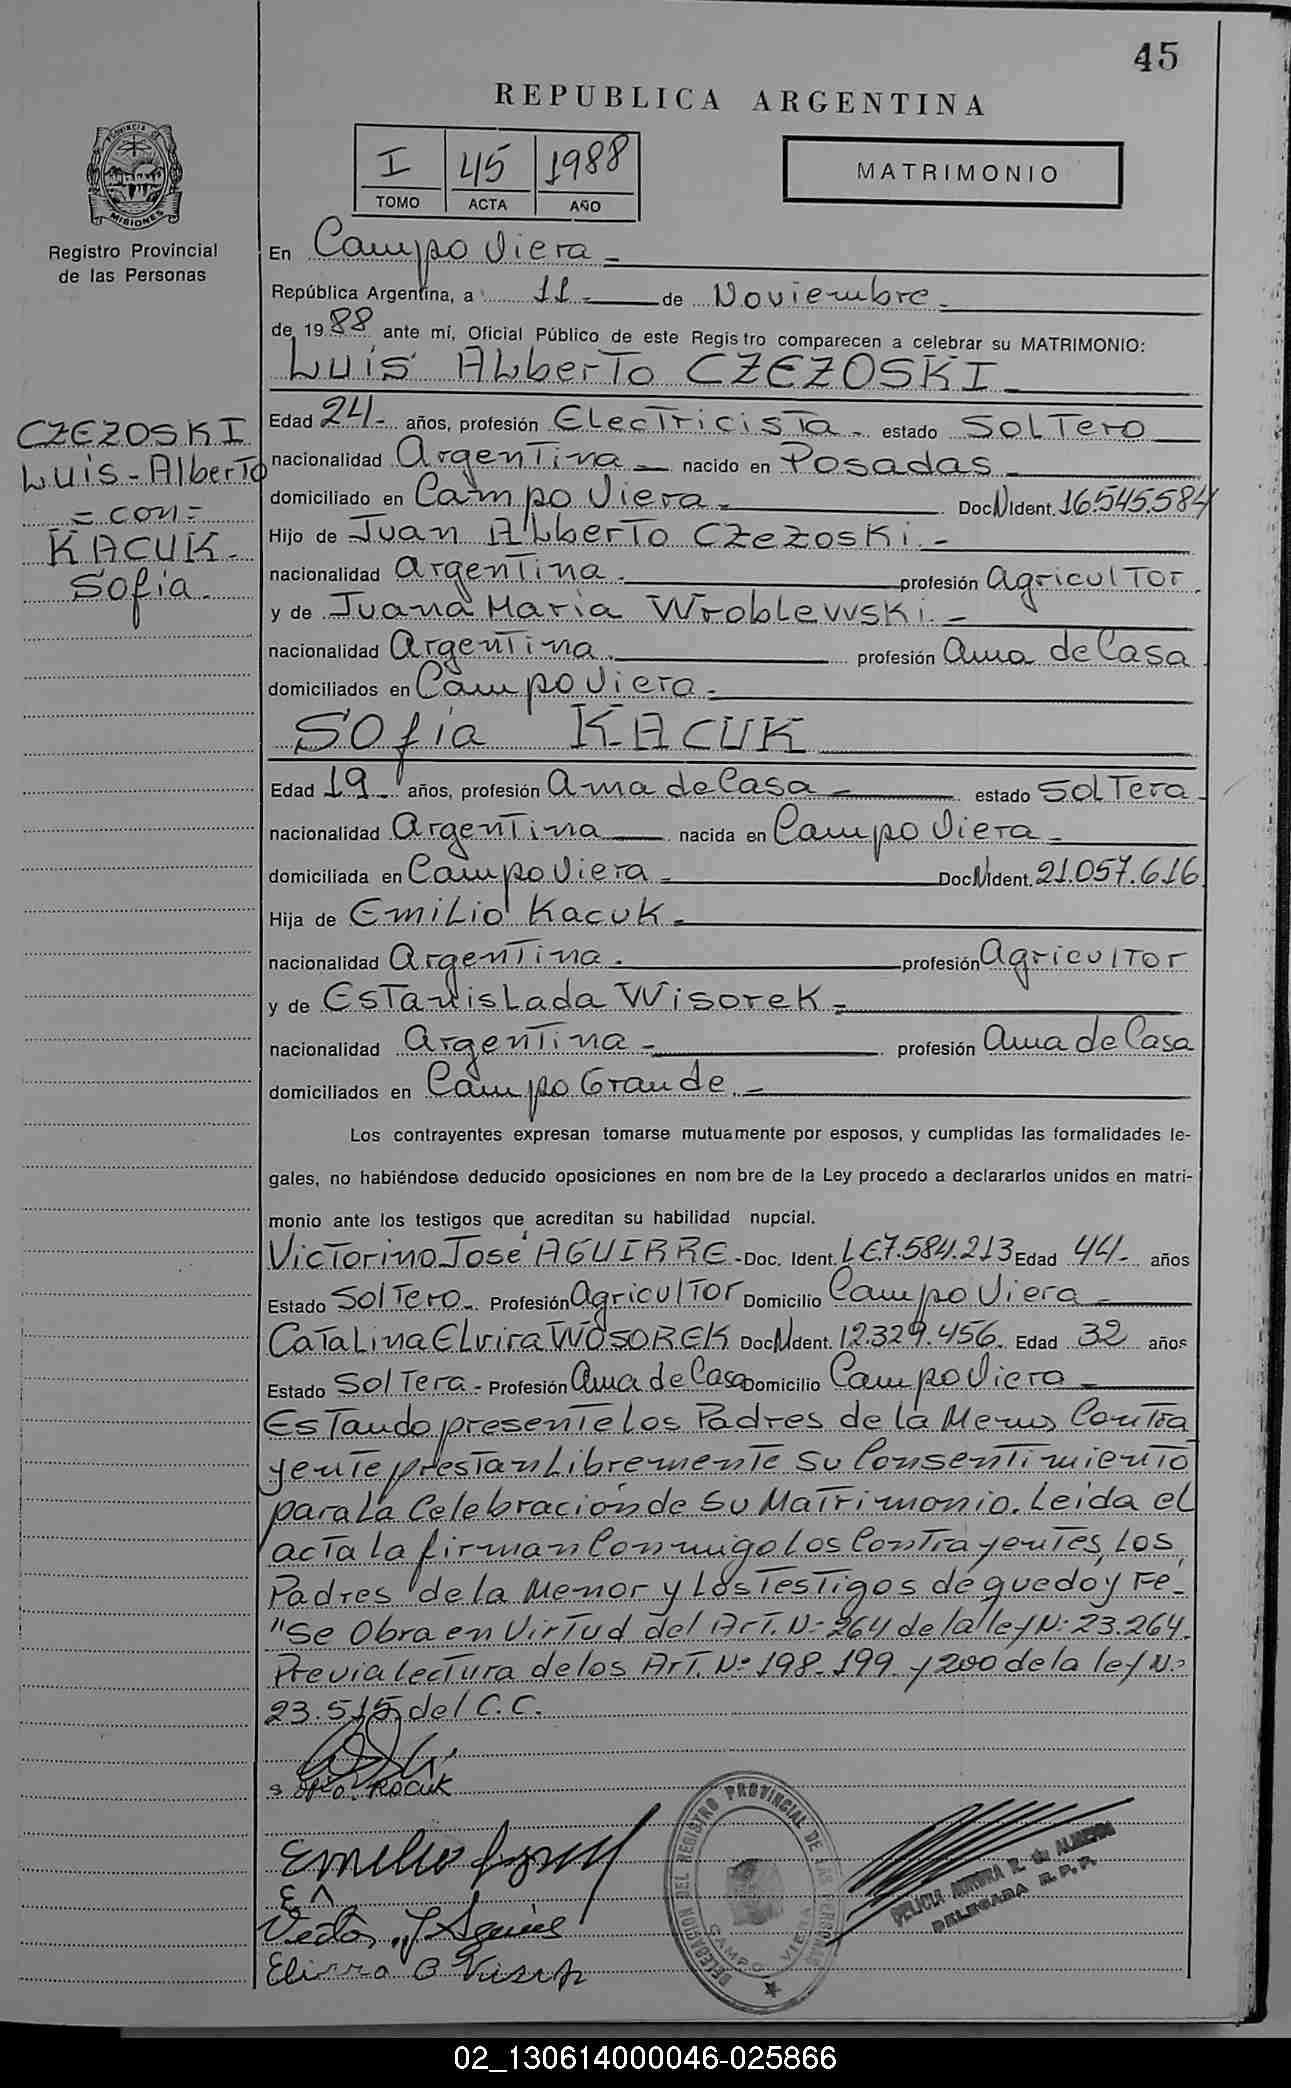 45
REPUBLICA ARGENTINA
PROVINCIA DE
MISIONES
Registro Provincial
de las Personas
I 45 1988
TOMO ACTA AÑO
MATRIMONIO
En Campo Viera
República Argentina, a 11 de Noviembre
de 1988 ante mí, Oficial Público de este Registro comparecen a celebrar su MATRIMONIO:
Luis Alberto CZEZOSKI
CZEZOSKI
Luis-Alberto
= con =
KACUK
Sofia.
Edad 24 años, profesión Electricista estado Soltero
nacionalidad Argentina nacido en Posadas
domiciliado en Campo Viera Doc N Ident. 16.545.584
Hijo de Juan Alberto Czezoski
nacionalidad Argentina profesión Agricultor
y de Juana Maria Wroblewski
nacionalidad Argentina profesión Ama de Casa
domiciliados en Campo Viera
Sofía KACUK
Edad 19 años, profesión Ama de Casa estado Soltera
nacionalidad Argentina nacida en Campo Viera
domiciliada en Campo Viera Doc N Ident. 21.057.616
Hija de Emilio Kacuk
nacionalidad Argentina profesión Agricultor
y de Estanislada Wisorek
nacionalidad Argentina profesión Ama de Casa
domiciliados en Campo Grande
Los contrayentes expresan tomarse mutuamente por esposos, y cumplidas las formalidades le-
gales, no habiéndose deducido oposiciones en nombre de la Ley procedo a declararlos unidos en matri-
monio ante los testigos que acreditan su habilidad nupcial.
Victorino José AGUIRRE Doc. Ident. L.E.7.584.213 Edad 44 años
Estado Soltero Profesión Agricultor Domicilio Campo Viera
Catalina Elvira WOSOREK Doc N Ident. 12.329.456 Edad 32 años
Estado Soltera Profesión Ama de Casa Domicilio Campo Viera
Estando presente los Padres de la Menor Contra
yente prestan Libremente su Consentimiento
para la Celebración de Su Matrimonio. Leida el
acta la firman Conmigo Los Contrayentes, Los
Padres de la Menor y Los Testigos de que doy Fe.
"Se Obra en Virtud del Art. Nº 264 de la ley Nº 23.264.
Previa lectura de los Art. Nº 198-199 y 200 de la ley Nº
23.515 del C.C.
Sofia Kacuk
Emilio
Elvira
DELEGACION DEL REGISTRO PROVINCIAL DE LAS PERSONAS
CAMPO VIERA
DELEGADA R.P.P.
02_130614000046-025866